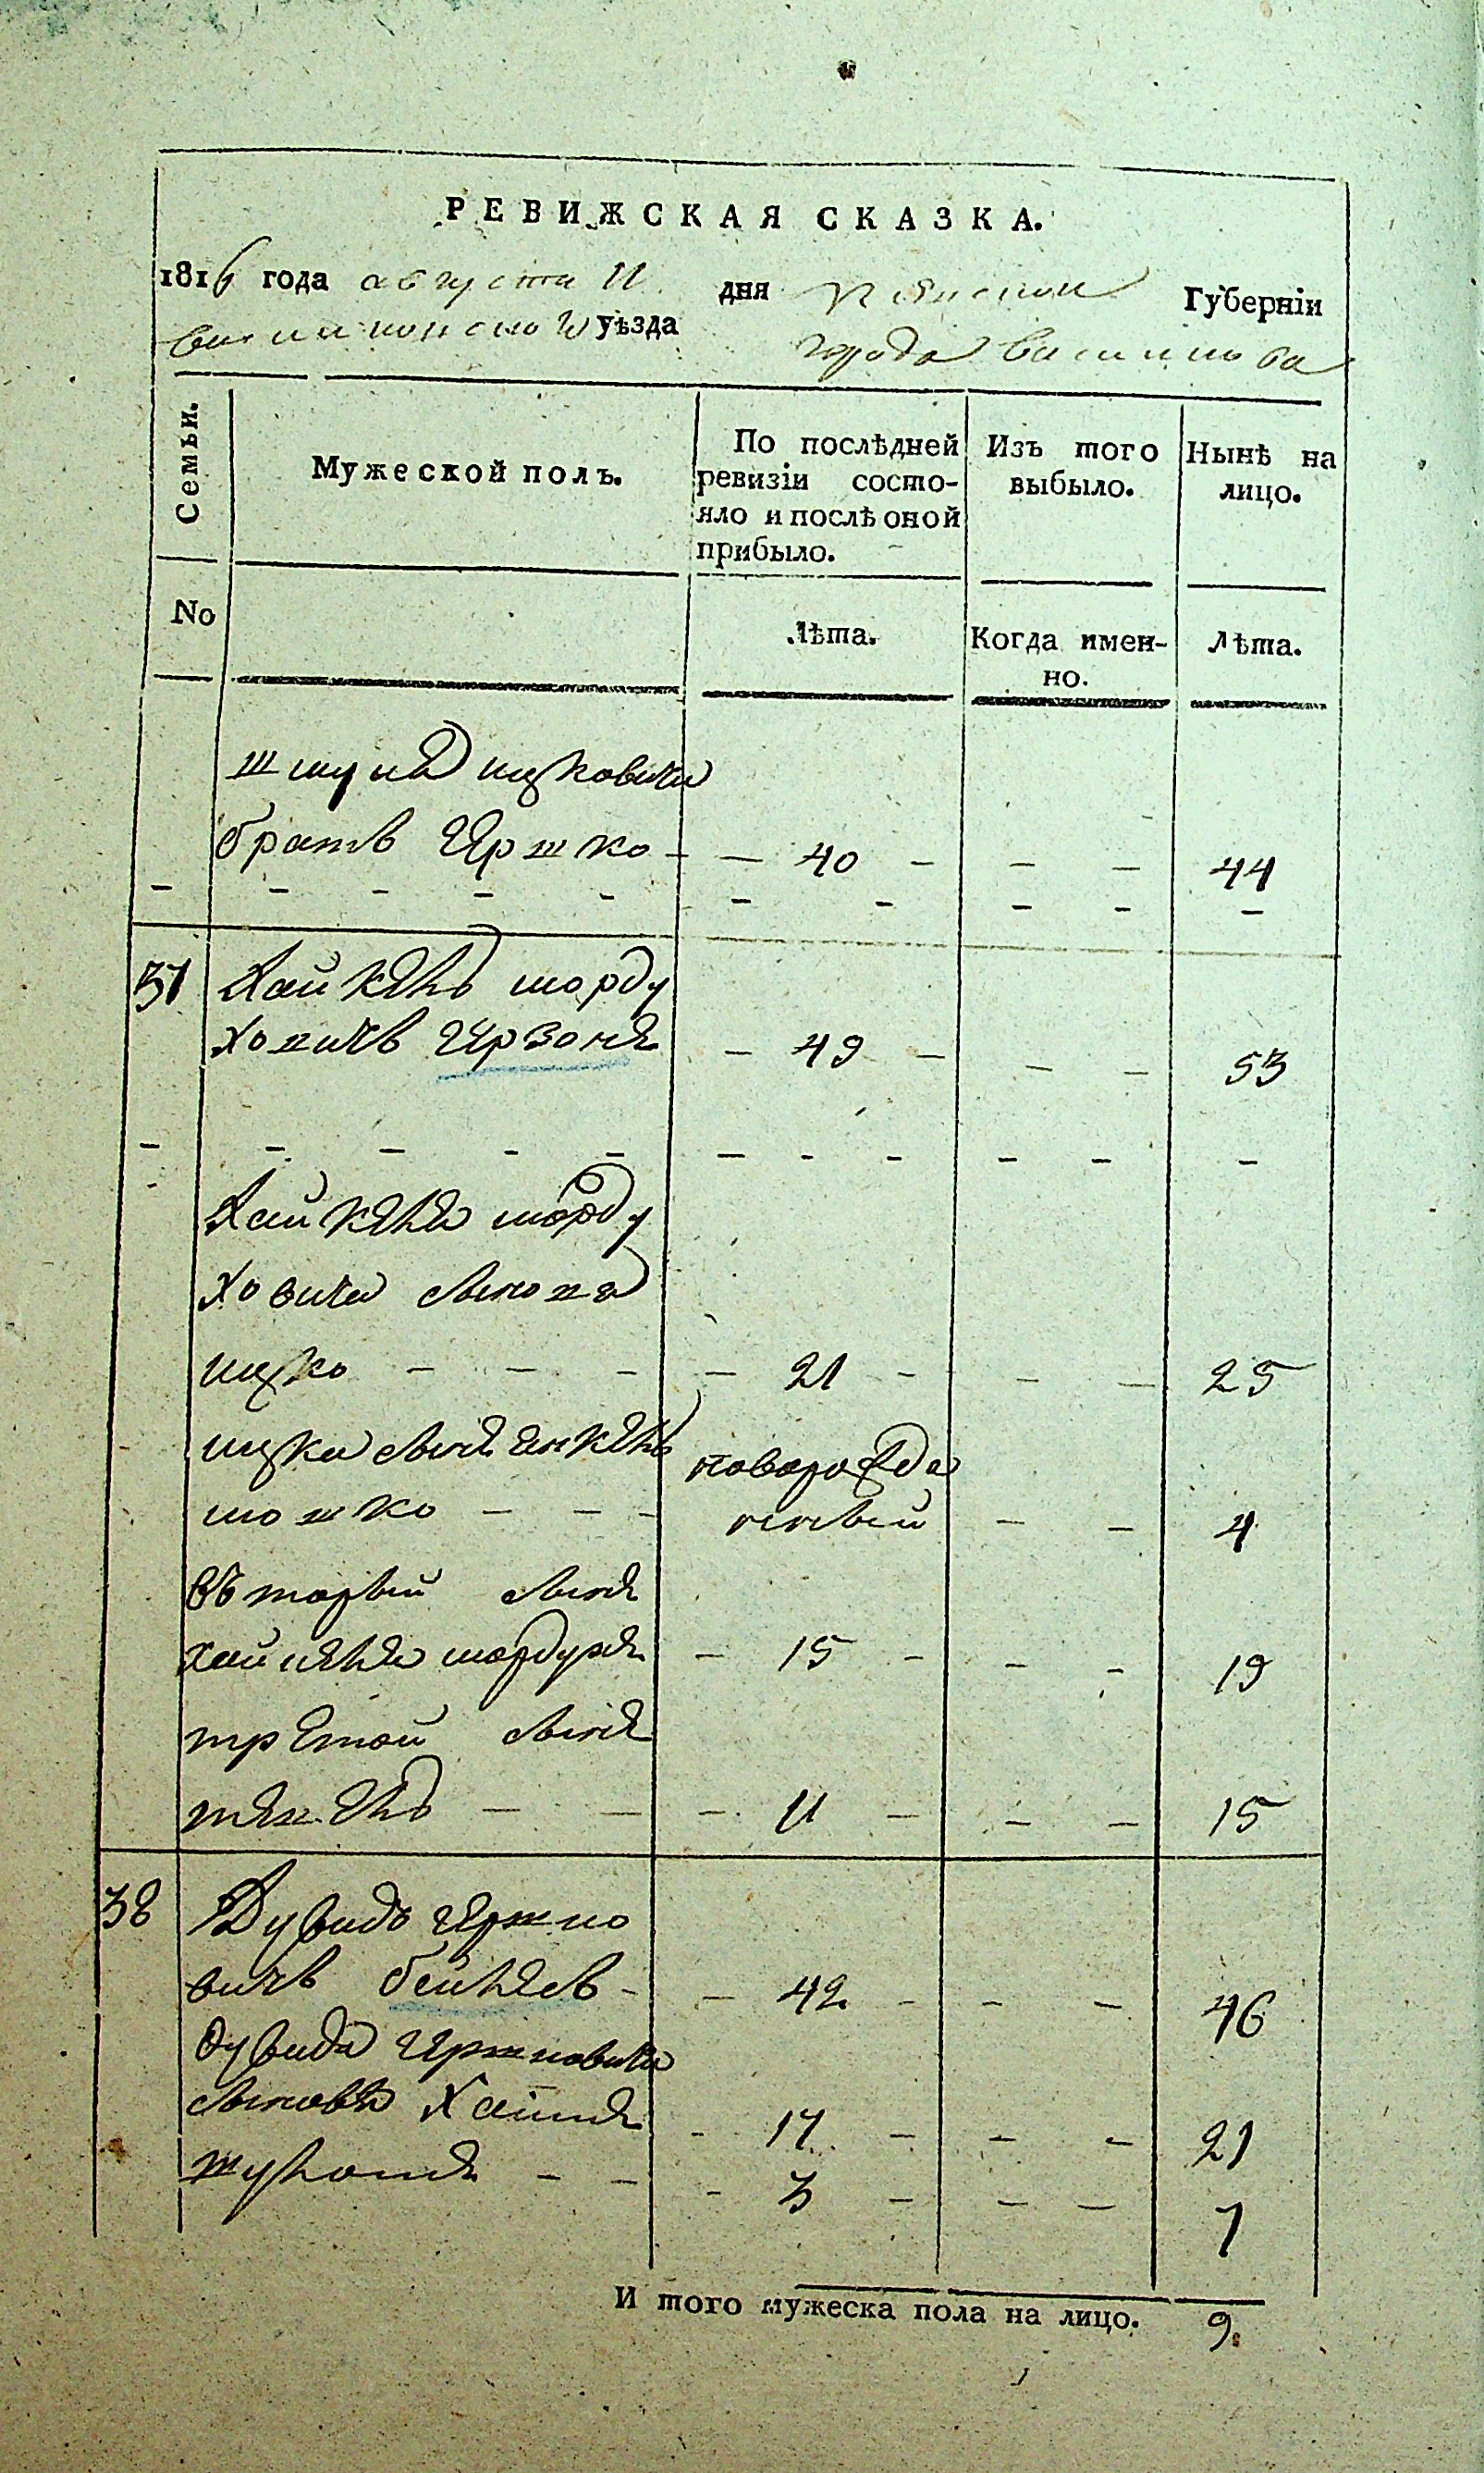 РЕВИЖСКАЯ СКАЗКА.
1816 года августа 11 дня Киевской Губерніи
васильковского уѣзда города василькова
Семьи.
Мужеской полъ.
По послѣдней ревизіи состо-
яло и послѣ оной
прибыло.
Изъ того
выбыло.
Нынѣ на
лицо.
No
Лѣта.
Когда имен-
но.
Лѣта.
шмуля ицковича
братъ Гершко - - 40 - - - 44
37 Хаймъ шорду
ховичъ - 49 - - - 53
шорду
ховича сынова
ицко - - - - 21 - - - 25
ицка сынъ
мошко - - - новорожде
нный - - 4
въторый сынъ
шордухъ - 15 - - - 19
третой сынъ
- - - 11 - - - 15
38 Дувидъ Гершко
вичъ - - 42 - - - 46
Дувида Гершковича
сыновя Хаимъ - 17 - - - 21
- - - 3 - - - 7
И того мужеска пола на лицо. 9.